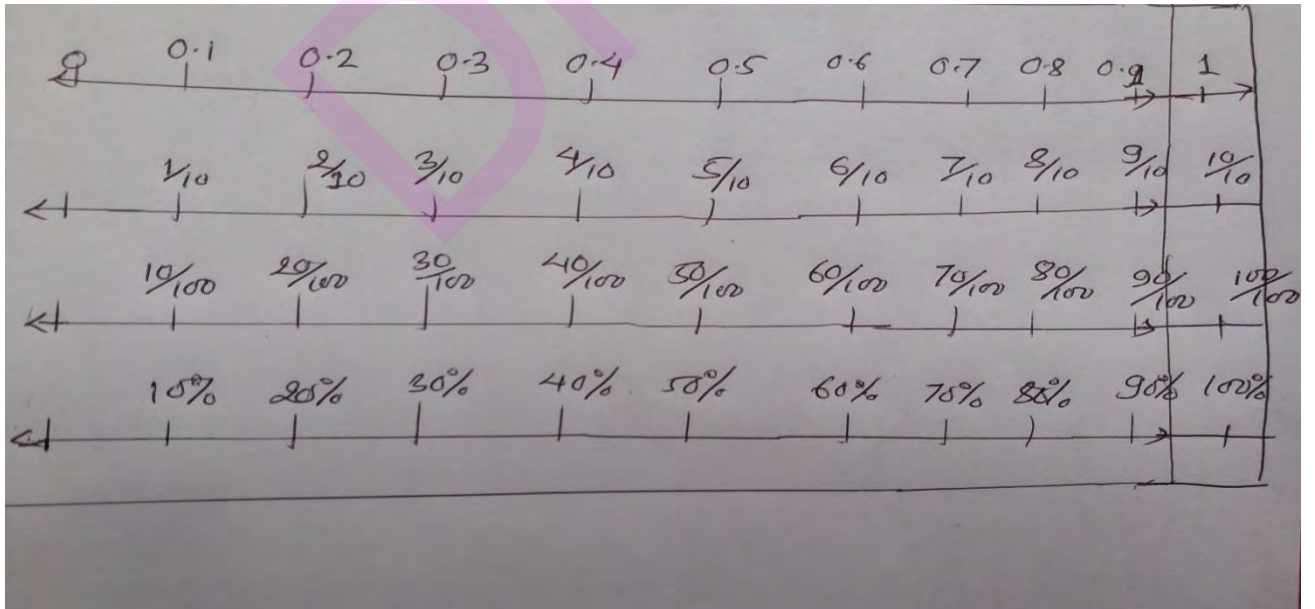 0 0.1 0.2 0.3 0.4 0.5 0.6 0.7 0.8 0.9 1
1/10 2/10 3/10 4/10 5/10 6/10 7/10 8/10 9/10 10/10
10/100 20/100 30/100 40/100 50/100 60/100 70/100 80/100 90/100 100/100
10% 20% 30% 40% 50% 60% 70% 80% 90% 100%